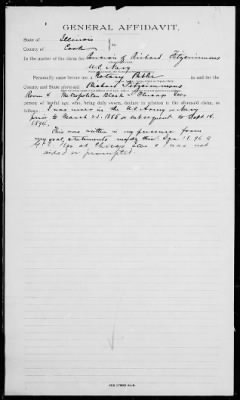 GENERAL AFFIDAVIT.
State of Illinois
County of Cook } ss
In the matter of the claim for Pension of Richard Fitzsimmons
U.S. Navy
Personally came before me, a Notary Public in and for the
County and State aforesaid Richard Fitzsimmons
Room 4 Metropolitan Block Chicago Ills
person of lawful age, who, being duly sworn, declare in relation to the aforesaid claim, as
follows: I was never in the U.S. Army or Navy
prior to March 21. 1865 or subsequent to Sept 18.
1890.
This was written in my presence from
my oral statements made this
at Chicago Ills & I was not
aided or prompted